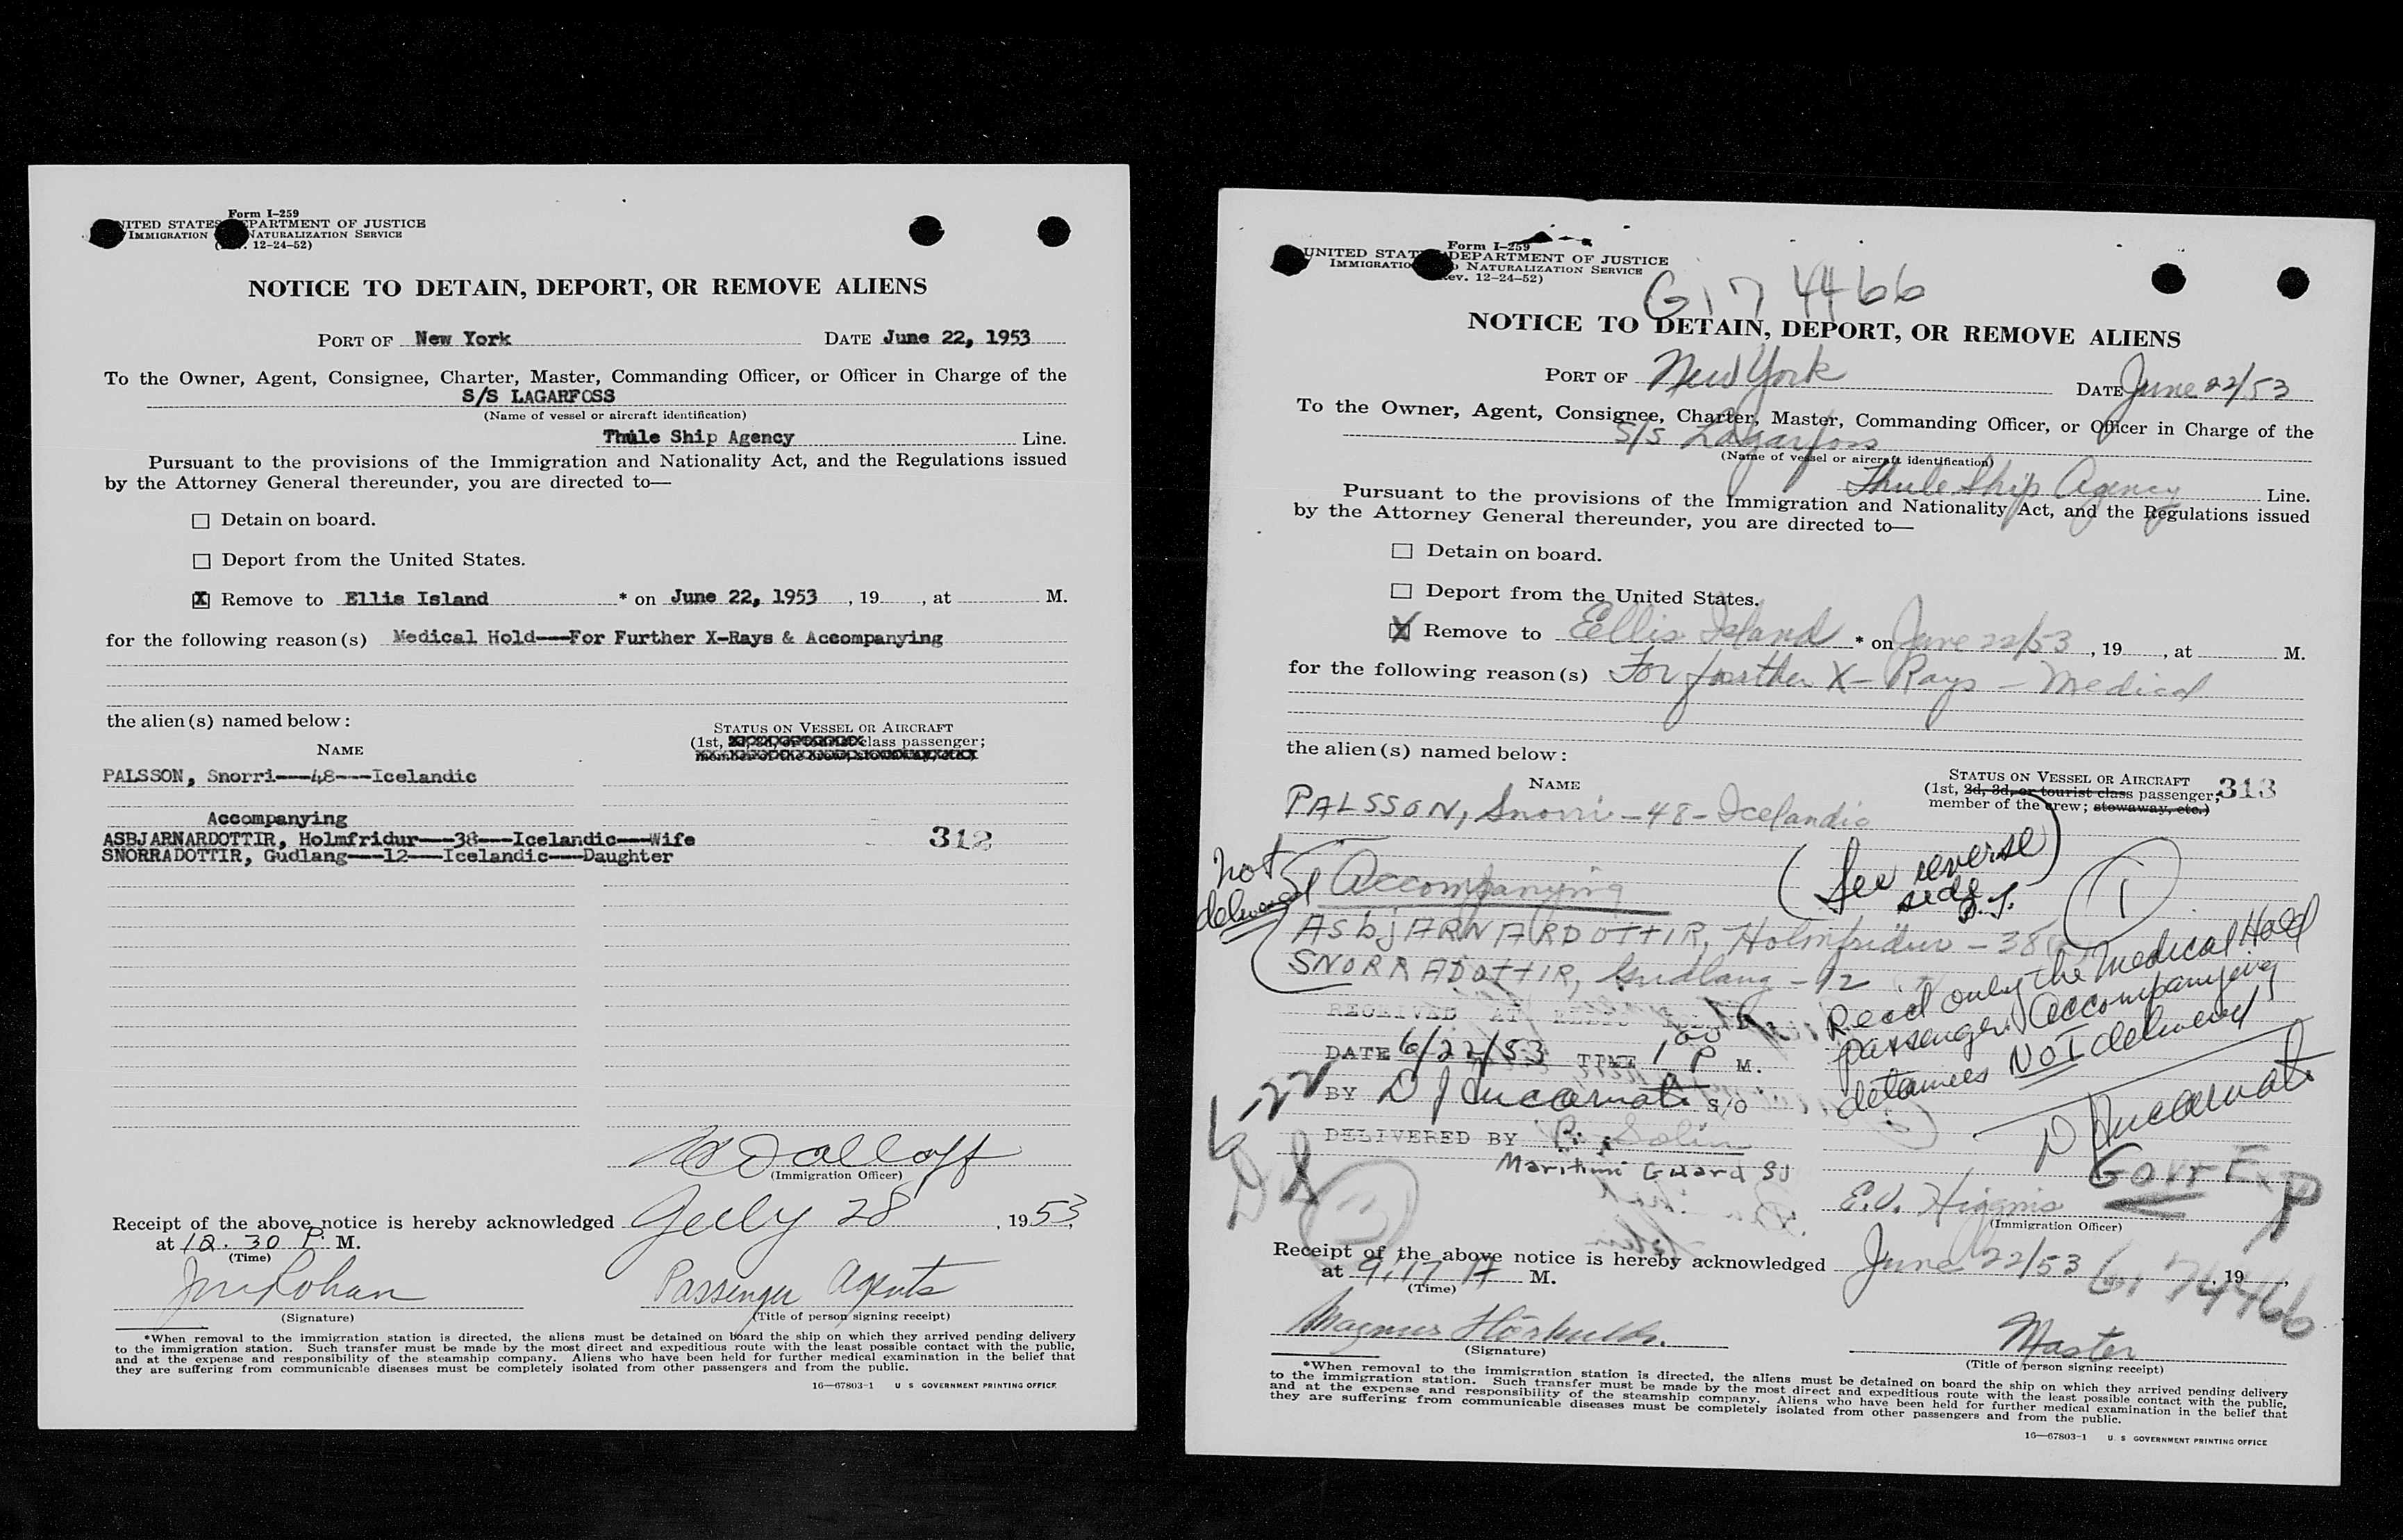 Form I-259
UNITED STATES DEPARTMENT OF JUSTICE
IMMIGRATION NATURALIZATION SERVICE
12-24-52)
NOTICE TO DETAIN, DEPORT, OR REMOVE ALIENS
PORT OF New York DATE June 22, 1953
To the Owner, Agent, Consignee, Charter, Master, Commanding Officer, or Officer in Charge of the
S/S LAGARFOSS
(Name of vessel or aircraft identification)
Thule Ship Agency Line.
Pursuant to the provisions of the Immigration and Nationality Act, and the Regulations issued
by the Attorney General thereunder, you are directed to—
☐ Detain on board.
☐ Deport from the United States.
☒ Remove to Ellis Island * on June 22, 1953, 19, at M.
for the following reason(s) Medical Hold---For Further X-Rays & Accompanying
the alien(s) named below:
NAME
STATUS ON VESSEL OR AIRCRAFT
(1st, class passenger;
PALSSON, Snorri---48---Icelandic
Accompanying
ASBJARNARDOTTIR, Holmfridur---38---Icelandic---Wife
SNORRADOTTIR, Gudlang---12---Icelandic---Daughter
312
(Immigration Officer)
Receipt of the above notice is hereby acknowledged July 28, 1953.
at 12.30 P. M.
(Time)
Passenger Agents
(Signature) (Title of person signing receipt)
*When removal to the immigration station is directed, the aliens must be detained on board the ship on which they arrived pending delivery
to the immigration station. Such transfer must be made by the most direct and expeditious route with the least possible contact with the public,
and at the expense and responsibility of the steamship company. Aliens who have been held for further medical examination in the belief that
they are suffering from communicable diseases must be completely isolated from other passengers and from the public.
16—67803-1 U S GOVERNMENT PRINTING OFFICE
Form I-259
UNITED STATES DEPARTMENT OF JUSTICE
IMMIGRATION NATURALIZATION SERVICE
Rev. 12-24-52)
G174466
NOTICE TO DETAIN, DEPORT, OR REMOVE ALIENS
PORT OF New York DATE June 22/53
To the Owner, Agent, Consignee, Charter, Master, Commanding Officer, or Officer in Charge of the
S/S Lagarfoss
(Name of vessel or aircraft identification)
Thule Ship Agency Line.
Pursuant to the provisions of the Immigration and Nationality Act, and the Regulations issued
by the Attorney General thereunder, you are directed to—
☐ Detain on board.
☐ Deport from the United States.
☒ Remove to Ellis Island * on June 22/53, 19, at M.
for the following reason(s) For further X-Rays - Medical
the alien(s) named below:
NAME
STATUS ON VESSEL OR AIRCRAFT
(1st, 2d, 3d, or tourist class passenger;
member of the crew; stowaway, etc.)
313
PALSSON, Snorri - 48 - Icelandic
(See reverse
side
D.I.
not
delivered
Accompanying
1
ASbjARNARDOTTIR, Holmfridur - 38
SNORRADOTTIR, Gudlang - 12
Recd only the medical Hold
passenger. Accompanying
detainees NOT delivered
D Incarnato
RECEIVED AT ELLIS ISLAND
DATE 6/22/53 TIME 1 00 P M.
BY D J Incarnato S/O
DELIVERED BY P. Solin
Maritime Guard
6-22
Govt Exp
E.V. Higgins
(Immigration Officer)
Receipt of the above notice is hereby acknowledged June 22/53, 19
at 9.17 A M.
(Time)
G174466
Magnus Master
(Signature) (Title of person signing receipt)
*When removal to the immigration station is directed, the aliens must be detained on board the ship on which they arrived pending delivery
to the immigration station. Such transfer must be made by the most direct and expeditious route with the least possible contact with the public,
and at the expense and responsibility of the steamship company. Aliens who have been held for further medical examination in the belief that
they are suffering from communicable diseases must be completely isolated from other passengers and from the public.
16—67803-1 U S GOVERNMENT PRINTING OFFICE